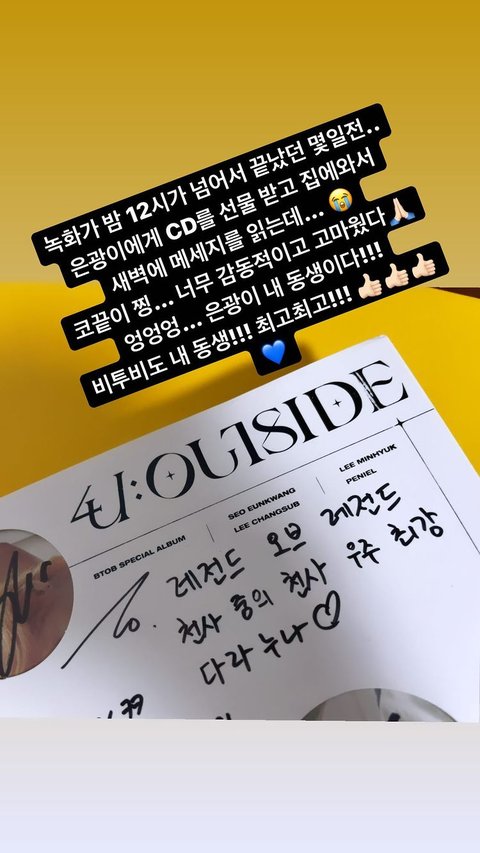 녹화가 밤 12시가 넘어서 끝났던 몇일전..
은광이에게 CD를 선물 받고 집에와서
새벽에 메세지를 읽는데... 😭
코끝이 찡... 너무 감동적이고 고마웠다 🙏🏻
엉엉엉... 은광이 내 동생이다!!!
비투비도 내 동생!!! 최고최고!!! 👍🏻👍🏻👍🏻
💙
4U:OUTSIDE
BTOB SPECIAL ALBUM
SEO EUNKWANG
LEE CHANGSUB
LEE MINHYUK
PENIEL
To. 레전드 오브 레전드
천사 중의 천사 우주 최강
다라 누나♡